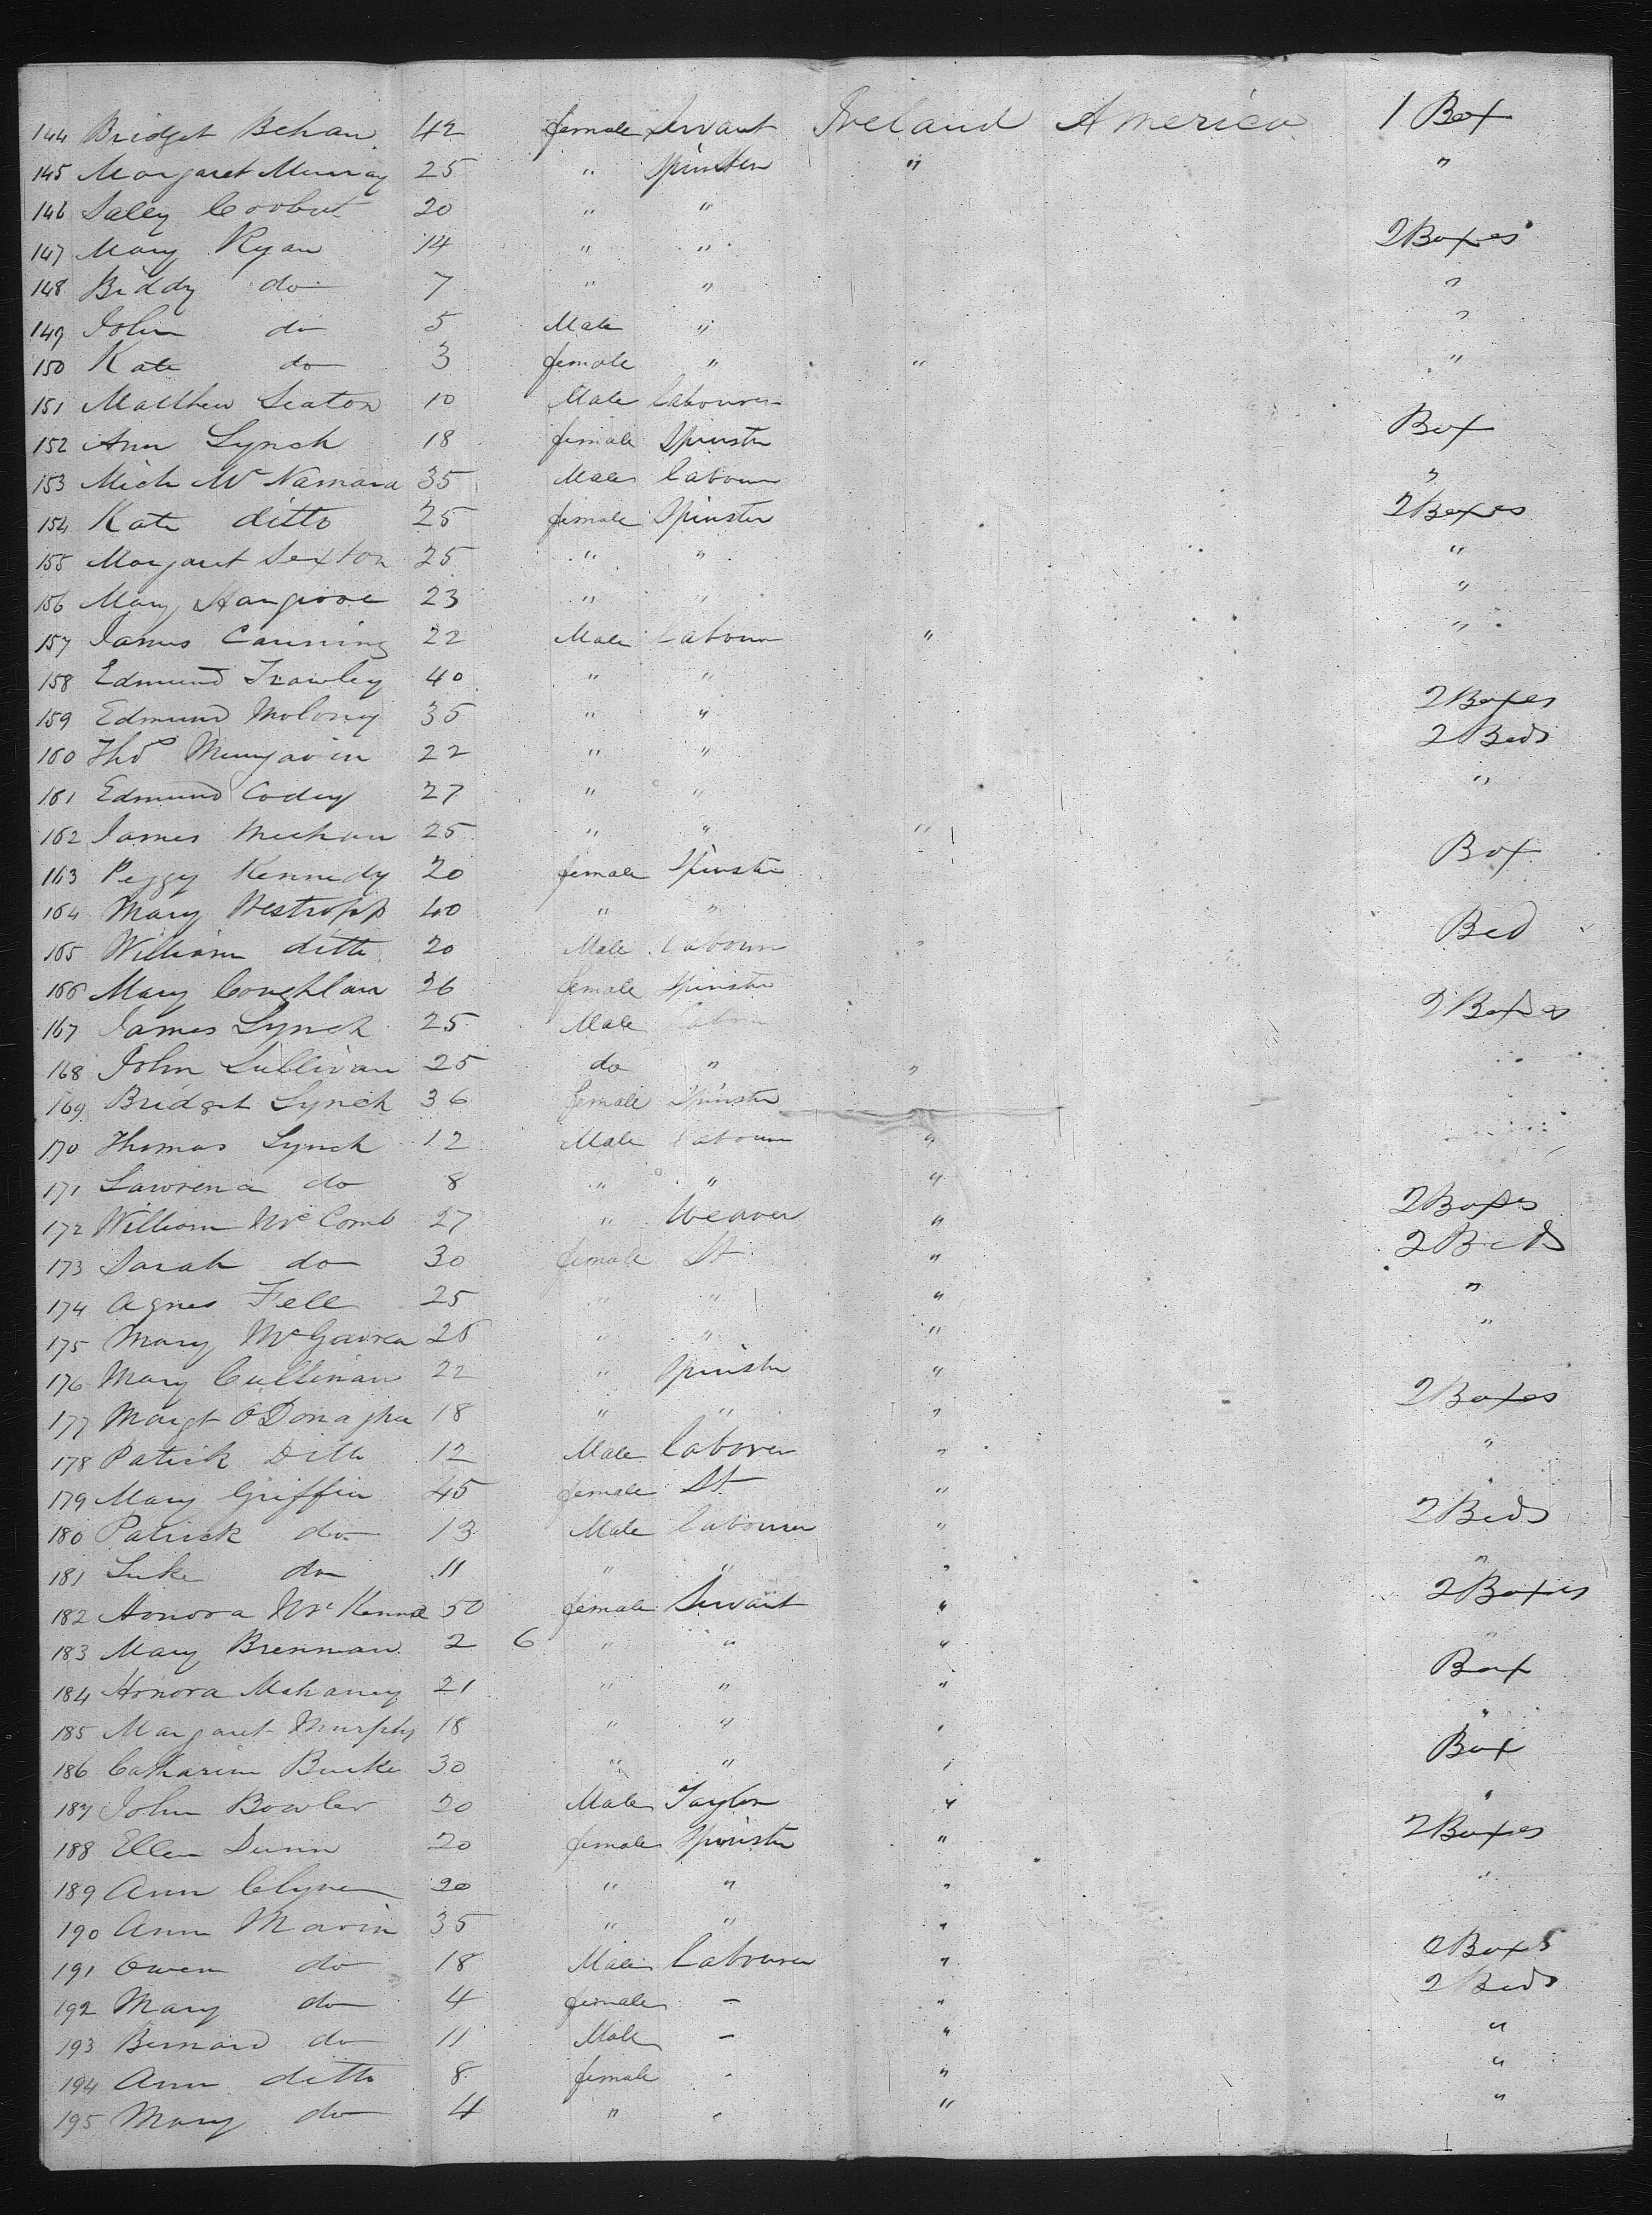 144 Bridget Behan 42 female Servant Ireland America 1 Box
145 Margaret Murray 25 " Spinster " "
146 Salley Corbut 20 " "
147 Mary Ryan 14 " " 2 Boxes
148 Biddy do 7 " " "
149 John do 5 Male " "
150 Kate do 3 female " " "
151 Matthew Seaton 10 Male labourer
152 Ann Lynch 18 female Spinster Box
153 Mich McNamara 35 Male labourer "
154 Kate ditto 25 female Spinster 2 Boxes
155 Margaret Sexton 25 " " "
156 Mary Hargrove 23 " " "
157 James Canning 22 Male Labourer " "
158 Edmund Trawley 40 " "
159 Edmund Molony 35 " " 2 Boxes
160 Thos Mungavin 22 " " 2 Beds
161 Edmund Codey 27 " " "
162 James Meehan 25 " " "
163 Peggy Kennedy 20 female Spinster Box
164 Mary Westropp 40 " "
165 William ditto 20 Male labourer " Bed
166 Mary Coughlan 26 female Spinster
167 James Lynch 25 Male labour 2 Boxes
168 John Sullivan 25 do " "
169 Bridget Lynch 36 female Spinster
170 Thomas Lynch 12 Male labourer "
171 Lawrence do 8 " " "
172 William McComb 27 " Weaver " 2 Boxes
173 Sarah do 30 female St " 2 Beds
174 Agnes Fell 25 " " " "
175 Mary 26 " " " "
176 Mary Cullinan 22 " Spinster "
177 Margt O'Donaghue 18 " " " 2 Boxes
178 Patrick Ditto 12 Male laborer " "
179 Mary Griffin 45 female St "
180 Patrick do 13 Male labourer " 2 Beds
181 Luke do 11 " " " "
182 Honora McKenna 50 female Servant " 2 Boxes
183 Mary Brennan 2 6 " " " "
184 Honora Mahaney 21 " " " Box
185 Margaret Murphy 18 " " " "
186 Catharine Burke 30 " " " Box
187 John Bowler 20 Male Taylor " "
188 Ellen Dunn 20 female Spinster " 2 Boxes
189 Ann Clyne 20 " " " "
190 Ann Mavin 35 " " "
191 Owen do 18 Male Labourer " 2 Boxes
192 Mary do 4 female - " 2 Beds
193 Bernard do 11 Male - " "
194 Ann ditto 8 female - " "
195 Mary do 4 " " " "